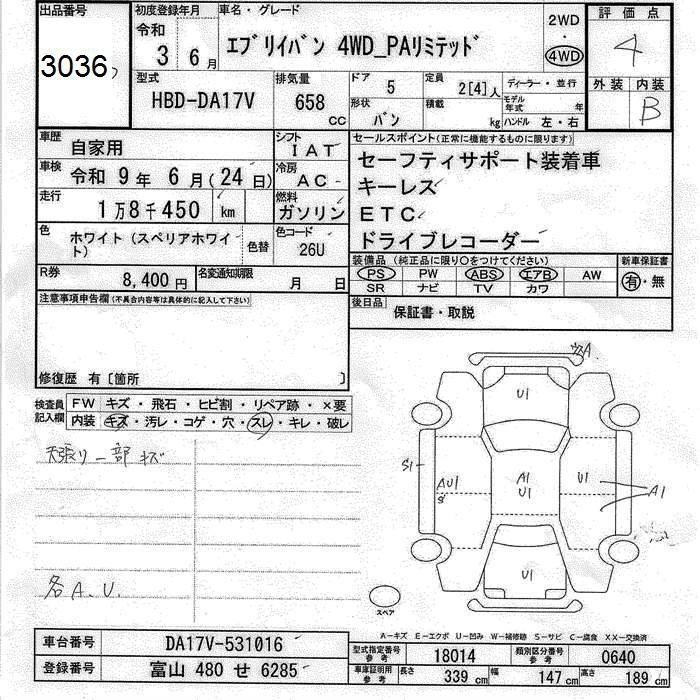 出品番号
3036
初度登録年月
令和
3 年 6 月
車名・グレード
エブリイバン 4WD_PAリミテッド
2WD
・
4WD
評価点
4
外装 内装
B
型式
HBD-DA17V
排気量
658
CC
ドア
5
形状
バン
定員
2[4]人
積載
kg
ディーラー・並行
モデル年式 年
ハンドル 左・右
車歴
自家用
シフト
IAT
車検
令和 9年 6月(24日)
冷房
AC
走行
1万8千450 km
燃料
ガソリン
色
ホワイト (スペリアホワイト)
色替
色コード
26U
R券
8,400円
名変通知期限
月 日
セールスポイント(正常に機能するものに限ります)
セーフティサポート装着車
キーレス
ETC
ドライブレコーダー
装備品 (純正品に限り○をつけてください)
PS PW ABS エアB AW
SR ナビ TV カワ
新車保証書
有・無
後日品
保証書・取説
注意事項申告欄(不具合内容等は具体的に記入して下さい)
修復歴 有〔箇所 〕
検査員記入欄
FW キズ・飛石・ヒビ割・リペア跡・×要
内装 キズ・汚レ・コゲ・穴・スレ・キレ・破レ
天張り一部キズ
各A.U.
A
U1
S1
AU1
S
A1
U1
U1
A1
U1
スペア
A-キズ E-エクボ U-凹み W-補修跡 S-サビ C-腐食 XX-交換済
車台番号
DA17V-531016
登録番号
富山 480 せ 6285
型式指定番号
参考
18014
類別区分番号
参考
0640
車庫証明用
参考
長さ 339 cm 幅 147 cm 高さ 189 cm